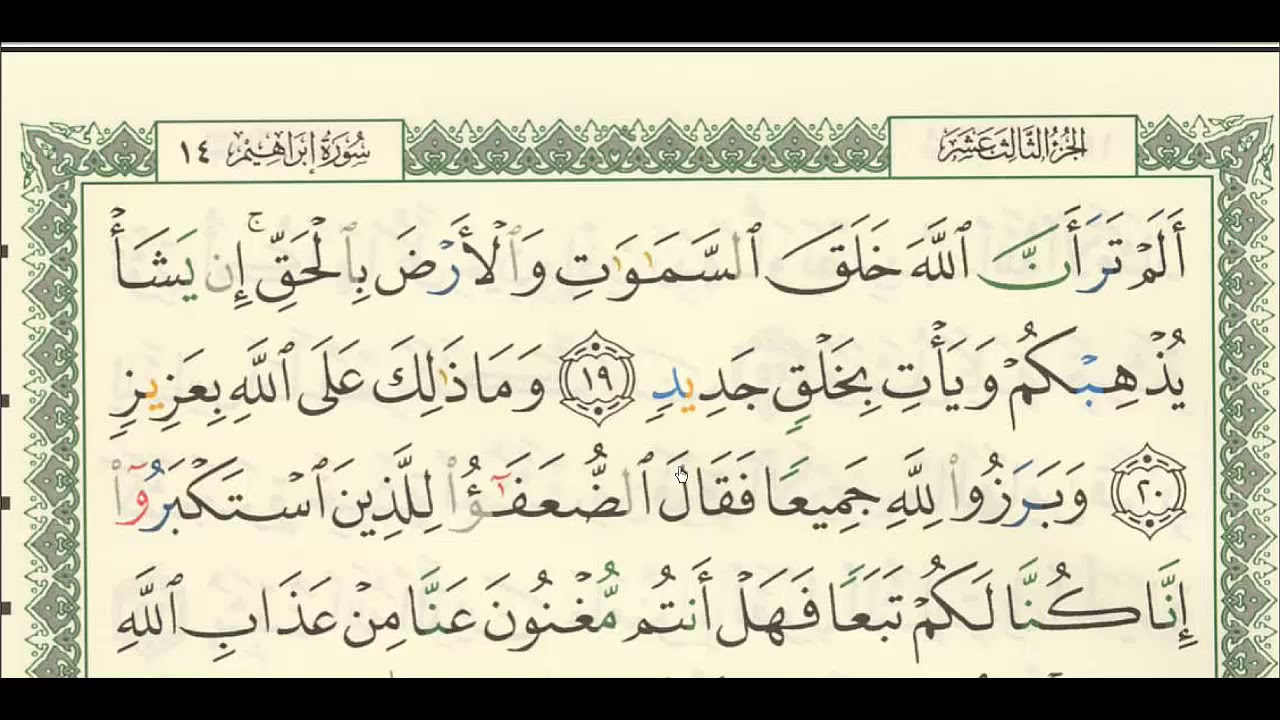 الجزء الثالث عشر
سورة إبراهيم ١٤
أَلَمْ تَرَ أَنَّ ٱللَّهَ خَلَقَ ٱلسَّمَٰوَٰتِ وَٱلْأَرْضَ بِٱلْحَقِّ ۚ إِن يَشَأْ
يُذْهِبْكُمْ وَيَأْتِ بِخَلْقٍ جَدِيدٍ ١٩ وَمَا ذَٰلِكَ عَلَى ٱللَّهِ بِعَزِيزٍ
٢٠ وَبَرَزُوا۟ لِلَّهِ جَمِيعًا فَقَالَ ٱلضُّعَفَٰٓؤُا۟ لِلَّذِينَ ٱسْتَكْبَرُوٓا۟
إِنَّا كُنَّا لَكُمْ تَبَعًا فَهَلْ أَنتُم مُّغْنُونَ عَنَّا مِنْ عَذَابِ ٱللَّهِ